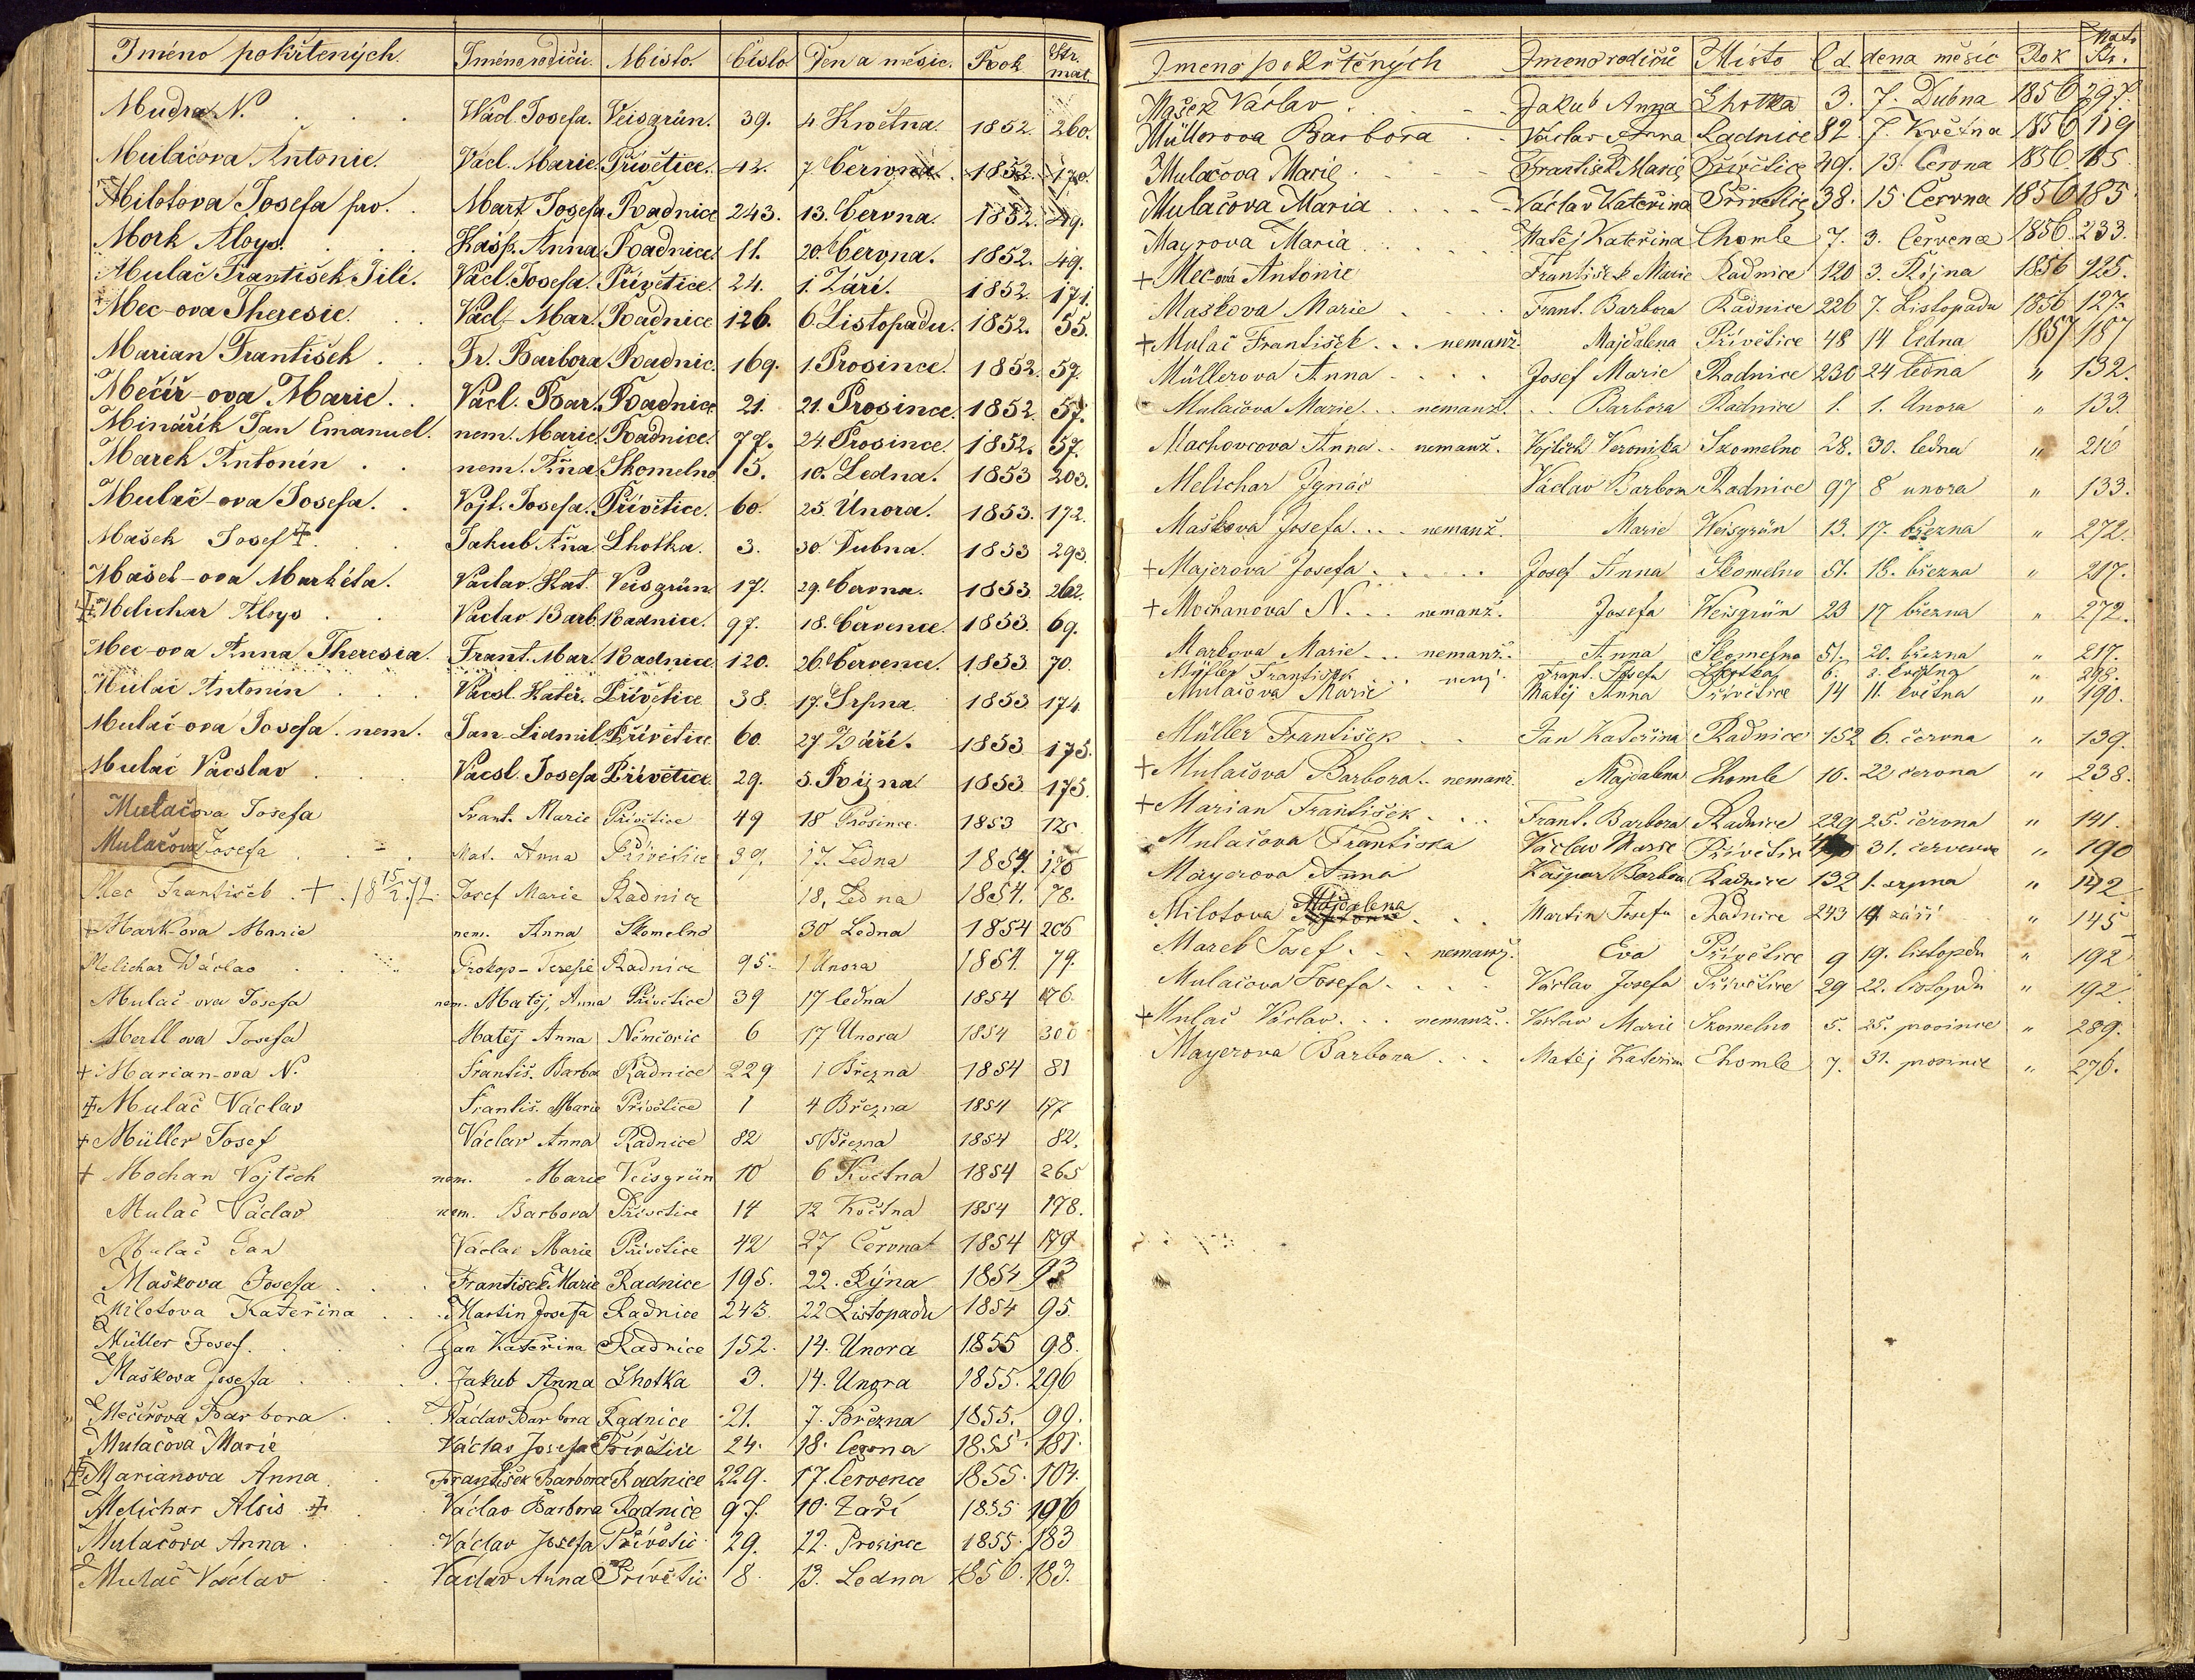 Jméno pokřtených. Jméno rodičů. Místo. Číslo Den a měsíc. Rok Str. mat.
Mudra N. Václ. Josefa. Veisgrün. 39. 4 Května. 1852. 260.
Mulačova Antonie. Václ. Marie. Přívětice. 42. 7. Června. 1852. 170.
Milotova Josefa Mart. Josefa Radnice 243. 13. Června. 1852. 49.
Mork Aloys. Kašp. Anna Radnice. 11. 20. Června. 1852. 49.
Mulač František Jilí. Václ. Josefa. Přívětice. 24. 1. Září. 1852. 171.
Mec-ova Theresie. Václ. Mar. Radnice 126. 6. Listopadu. 1852. 55.
Marian František. Fr. Barbora Radnic. 169. 1. Prosince. 1852. 57.
Mečíř-ova Marie. Václ. Bar. Radnice 21. 21. Prosince. 1852 57.
Minářík Jan Emanuel. nem. Marie. Radnice. 77. 24. Prosince. 1852. 57.
Marek Antonín nem. Aña Skomelno 15. 10. Ledna. 1853 203.
Mulač-ova Josefa. Vojt. Josefa. Přívětice. 60. 25. Února. 1853. 172.
Mašek Josef ‡. Jakub Aña Lhotka. 3. 30. Dubna. 1853 293
Mašek-ova Markéta. Václav. Kat. Veisgrün 17. 29. Června. 1853. 262.
‡ Melichar Aloys Václav Barb. Radnice. 97. 18. Července. 1853. 69.
Mec-ova Anna Theresia. Frant. Mar. Radnice 120. 26. Července. 1853 70.
Mulač Antonín Vácsl. Kateř. Přívětice 38. 17. Srpna. 1853 174
Mulač-ova Josefa. nem. Jan Lidmil. Přívětice 60. 27 Září. 1853 175.
Mulač Vácslav Vácsl. Josefa Přívětice 29. 5. Října. 1853. 175.
Mulačova Josefa Frant. Marie Přívětice 49 18 Prosince. 1853 175
Mulačova Josefa Mat. Anna Přívětice 39. 17. Ledna 1854. 176
Mec František . + . 18 15/2 72. Josef Marie Radnice 18. Ledna 1854. 78.
+ Mark-ova Marie nem. Anna Skomelno 30 Ledna 1854 206
Melichar Václav Prokop - Teresie Radnice 95. 1 Února 1854. 79.
Mulač-ova Josefa nem. Matěj, Anna Přívětice 39 17 ledna 1854 176.
Mertl ova Josefa Matěj Anna Němčovic 6 17 Února 1854 300
+ Marian-ova N. Františ. Barba Radnice 229 1 Března 1854 81
‡ Mulač Václav Františ. Marie Přívětice 1 4 Března 1854 177
+ Müller Josef Václav Anna Radnice 82 5 Března 1854 82.
+ Mochan Vojtěch nem. Marie Veisgrün 10 6 Května 1854 265
Mulač Václav nem. Barbora Přívětice 14 12 Května 1854 178.
Mulač Jan Václav Marie Přívětice 42 27 Června 1854 179
Maškova Josefa František Marie Radnice 195. 22. Rýna 1854 93
Milotova Kateřina Martin Josefa Radnice 243. 22 Listopadu 1854 95.
Müller Josef. Jan Kateřina Radnice 152. 14. Unora 1855 98.
Maškova Josefa Jakub Anna Lhotka 3. 14. Unora 1855. 296
Mečířova Barbora Václav Barbora Radnice 21. 7. Března 1855. 99.
Mulačova Marie Václav Josefa Přívětice 24. 18. Června 1855. 181.
‡ Marianova Anna František Barbora Radnice 229. 17. Července 1855. 104.
Melichar Alois ‡ Václav Barbora Radnice 97. 10. Září 1855 106
Mulačova Anna Václav Josefa Přívětic 29. 22. Prosince 1855. 183
Mulač Václav Václav Anna Přívětic 8. 13. Ledna 1856. 183.
Jmeno pokřtěných Jmeno rodičů Místo Č d. dena měsíc Rok Mat. Str.
Mašek Václav Jakub Anna Lhotka 3. 7. Dubna 1856 297.
Müllerova Barbora Václav Anna Radnice 82 7. Května 1856 119
Mulačova Marie František Marie Přívětice 49. 13. Června 1856. 185
Mulačova Maria Václav Kateřina Přívětice 38. 15. Června 1856 185
Mayrova Maria Matěj Kateřina Chomle 7. 3. Července 1856. 233.
+ Mec-ova Antonie František Marie Radnice 120 3. Října 1856 125.
Maškova Marie Frant. Barbora Radnice 226 7. Listopadu 1856 127.
+ Mulač František . . . nemanž. Majdalena Přívětice 48 14 ledna 1857 187
Müllerova Anna Josef Marie Radnice 230 24 ledna " 132.
Mulačova Marie . . . nemanž. Barbora Radnice 1. 1. Února " 133.
Machovcova Anna . . nemanž. Vojtěch Veronika Skomelno 28. 30. ledna " 216
Melichar Ignác Václav Barbora Radnice 97 8 unora " 133.
Maškova Josefa . . . nemanž. Marie Weisgrün 13. 17. března " 272.
+ Majerova Josefa Josef Anna Skomelno 51. 18. března " 217.
+ Mochanova N. . . nemanž. Josefa Weisgrün 23 17 března " 272.
Markova Marie . . . nemanž. Anna Skomelno 51. 20. března " 217.
Müller František . . . nem. Frant. Josefa Lhotka 6. 2. května " 298.
Mulačova Marie Matěj Anna Přívětice 14 11. května " 190.
Müller František Jan Kateřina Radnice 152 6. června " 139.
+ Mulačova Barbora . . nemanž. Majdalena Chomle 16. 22 června " 238.
+ Marian František Frant. Barbora Radnice 229 25. června " 141.
Mulačova Františka Václav Marie Přívětice 31. července " 190
Mayerova Anna Kašpar Barbora Radnice 132 1. srpna " 142
Milotova Majdalena Martin Josefa Radnice 243 19. září " 145
Mareb Josef . . . nemanž. Eva Přívětice 9 19. listopdu " 192
Mulačova Josefa Václav Josefa Přívětice 29 22. listopdu " 192.
+ Mulač Václav . . . nemanž. Václav Marie Skomelno 5. 25. prosince " 289.
Mayerova Barbora Matěj Kateřina Chomle 7. 31. prosince " 276.